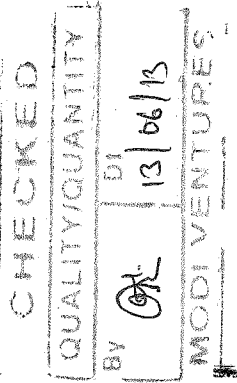 CHECKED
QUALITY/QUANTITY
BY DI
13/06/13
MODI VENTURES